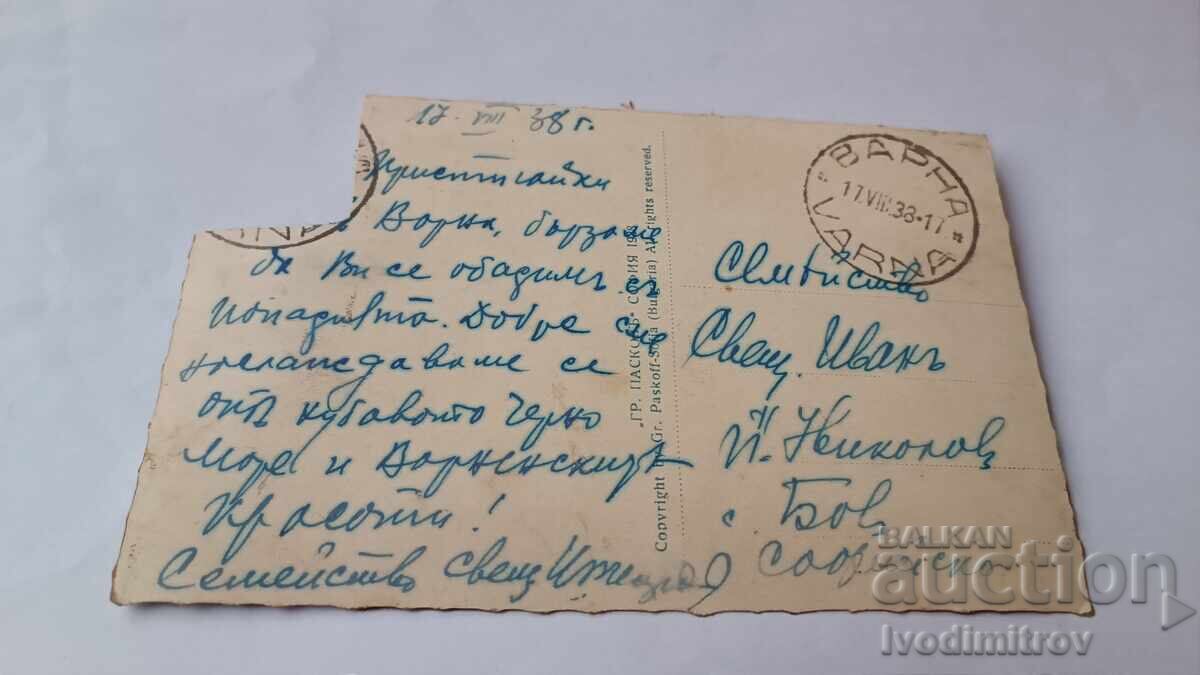 17. VIII 38 г.
Пристигайки
Варна, бързаме
да Ви се обадимъ
Добре сме
наслаждаваме се
отъ хубавото Черно
Море и Варненскитѣ
Красоти!
Семейство свещ.
"ГР. ПАСКОВЪ" СОФИЯ
Copyright by Gr. Paskoff-Sofia (Bulgaria) All rights reserved.
ВАРНА
17.VIII.38-17
VARNA
Семейство
Свещ. Иванъ
Й. Николов
с. Бов
Софийско
BALKAN
auction
Ivodimitrov